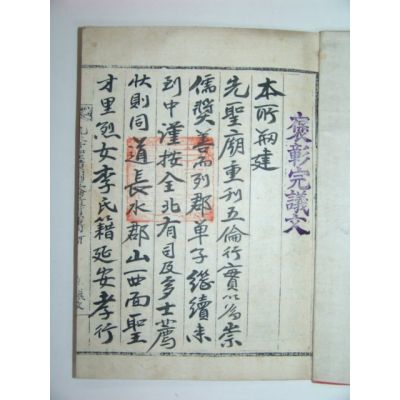 褒彰完議文
本所刱建
先聖廟重刊五倫行實以為崇
儒奬善而列郡單子継續来
到中謹按全北有司及多士薦
狀則同道長水郡山西面聖
才里烈女李氏籍延安孝行